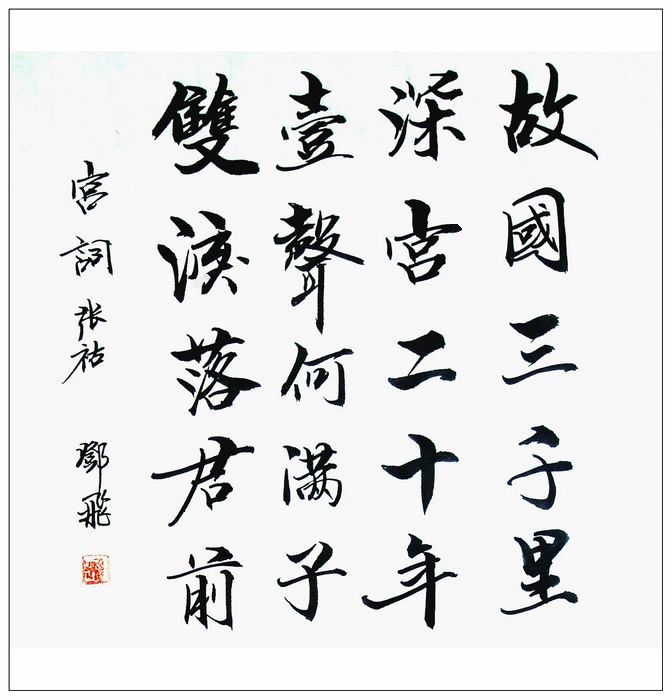 故國三千里
深宮二十年
壹聲何满子
雙淚落君前
宮詞 张祜 鄧飛